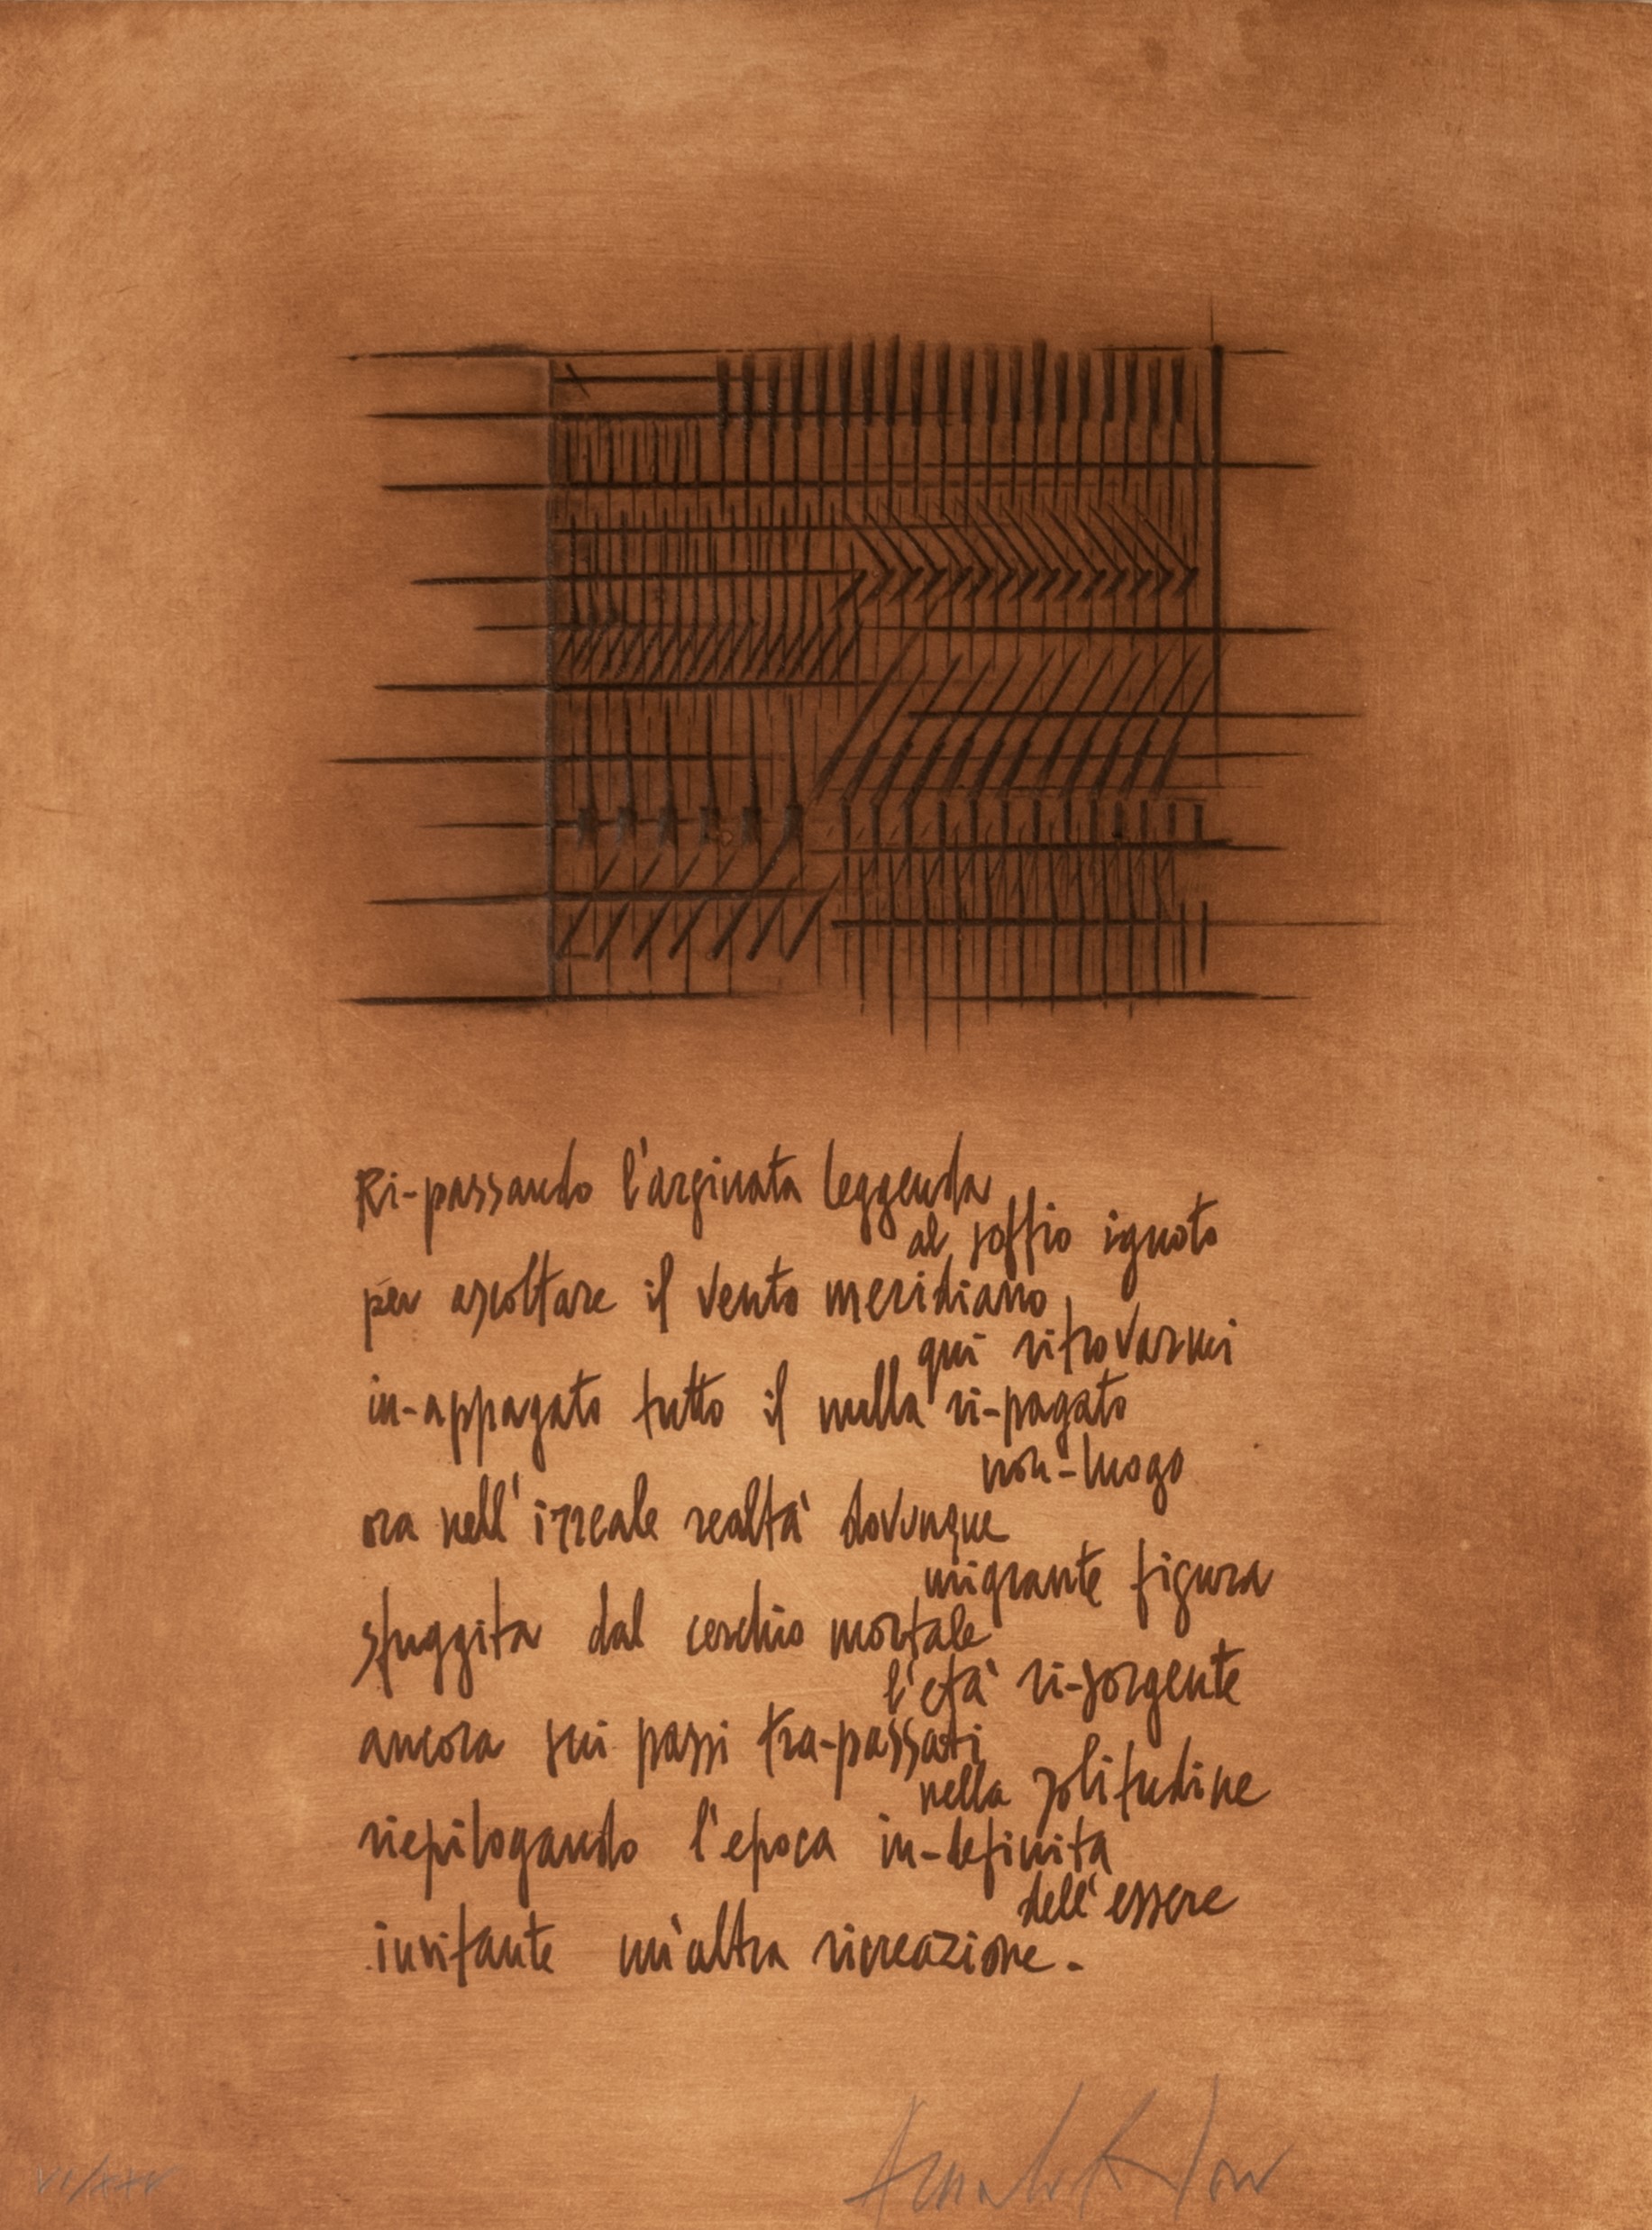 Ri-passando l'arginata leggenda
al soffio ignoto
per ascoltare il vento meridiano
qui ritrovarmi
in-appagato tutto il nulla ri-pagato
non-luogo
ora nell'irreale realtà dovunque
migrante figura
sfuggita dal cerchio mortale
l'età ri-sorgente
ancora sui passi tra-passati
nella solitudine
riepilogando l'epoca in-definita
dell'essere
invitante un'altra ricreazione.-
VI/XXV